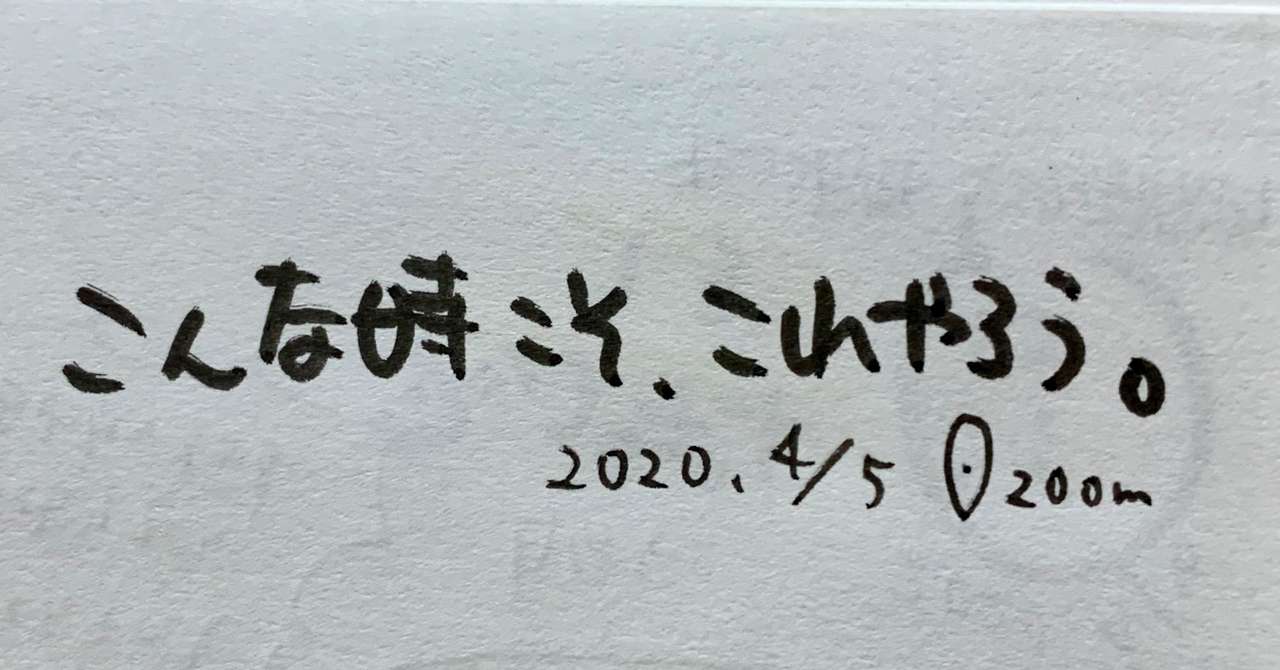 こんな時こそ、これやろう。
2020. 4/5 200m